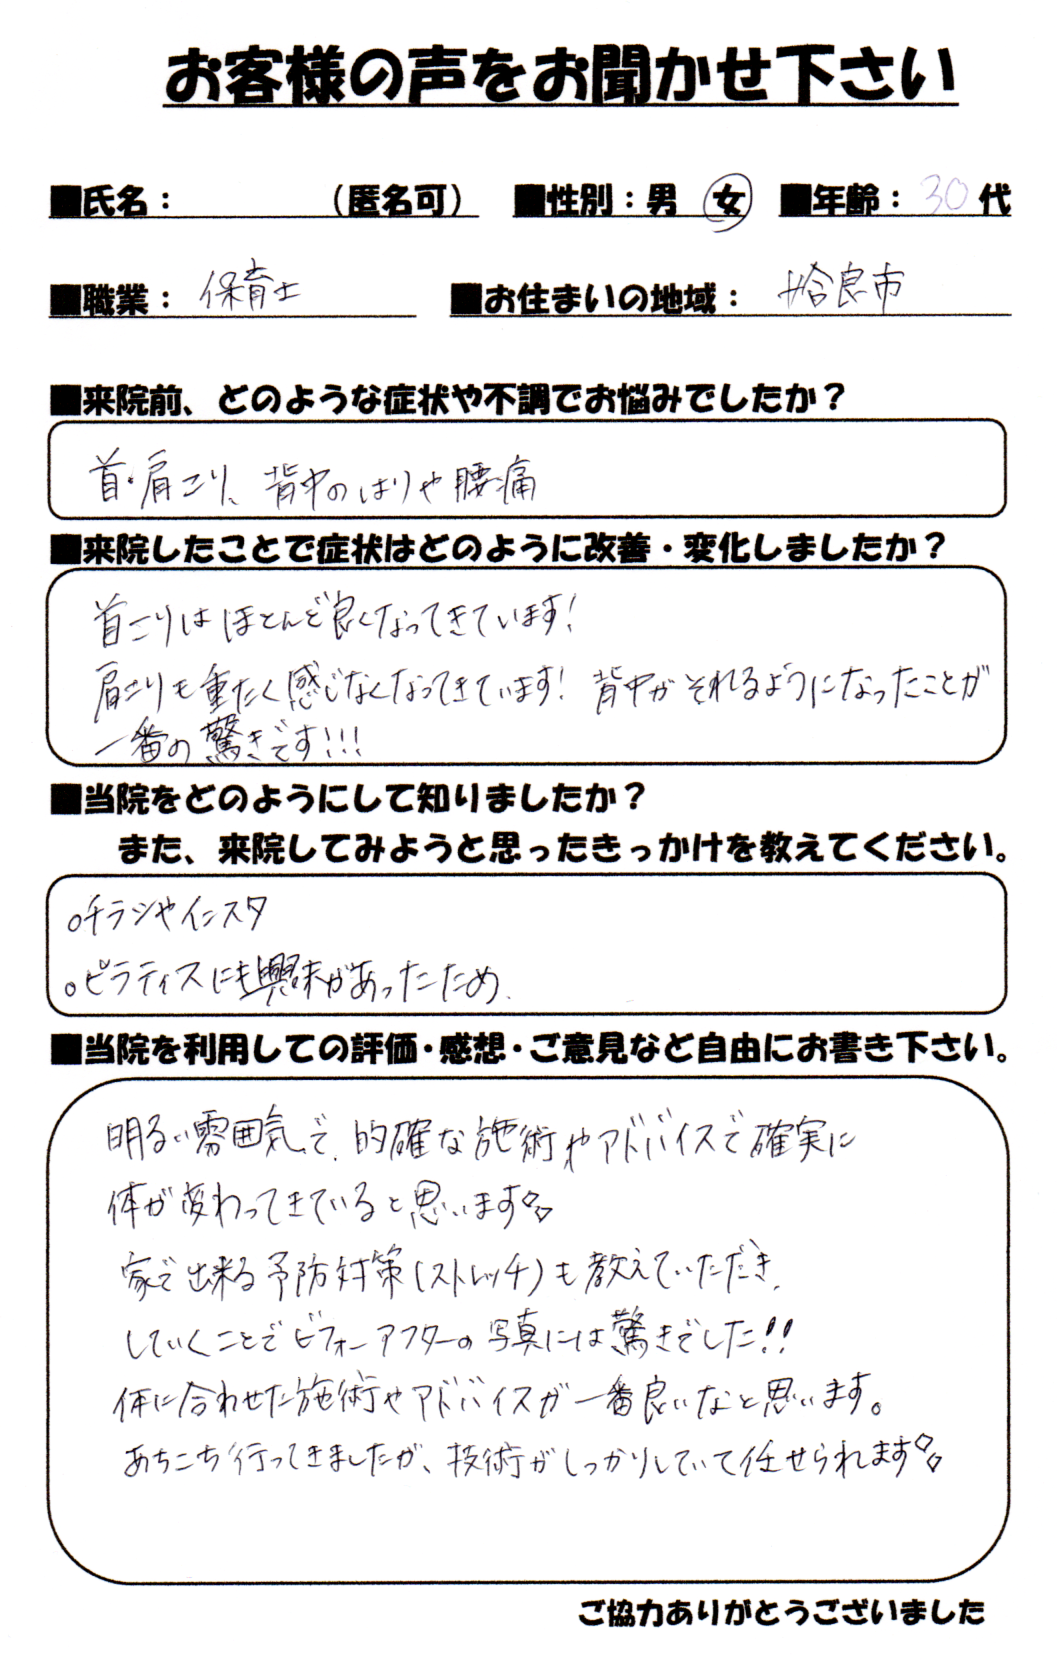 お客様の声をお聞かせ下さい
■氏名： （匿名可） ■性別：男 女 ■年齢：30代
■職業：保育士 ■お住まいの地域：姶良市
■来院前、どのような症状や不調でお悩みでしたか？
首・肩こり、背中のはりや腰痛
■来院したことで症状はどのように改善・変化しましたか？
首こりはほとんど良くなってきています！
肩こりも重たく感じなくなってきています！ 背中がそれるようになったことが
一番の驚きです！！！
■当院をどのようにして知りましたか？
また、来院してみようと思ったきっかけを教えてください。
○チラシやインスタ
○ピラティスにも興味があったため.
■当院を利用しての評価・感想・ご意見など自由にお書き下さい。
明るい雰囲気で、的確な施術やアドバイスで確実に
体が変わってきていると思います
家で出来る予防対策(ストレッチ)も教えていただき、
していくことでビフォーアフターの写真には驚きでした!!
体に合わせた施術やアドバイスが一番良いなと思います。
あちこち行ってきましたが、技術がしっかりしていて任せられます
ご協力ありがとうございました